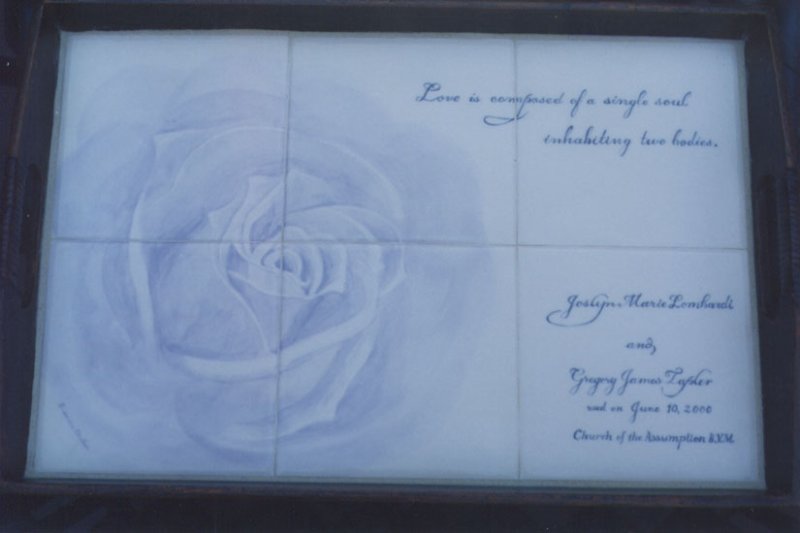 Love is composed of a single soul
inhabiting two bodies.
Joslyn Marie Lombardi
and
Gregory James Tayler
wed on June 10, 2000
Church of the Assumption B.V.M.